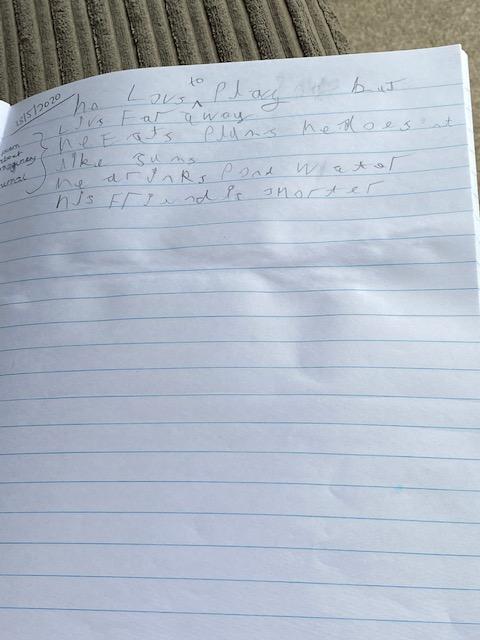 15/5/2020
he Lovs to Play but
Livs Far away
he Eats Plums he does nt
like sums
he drinks Pond Water
his FFiend is shorter
Poem
about
imaginary
animal